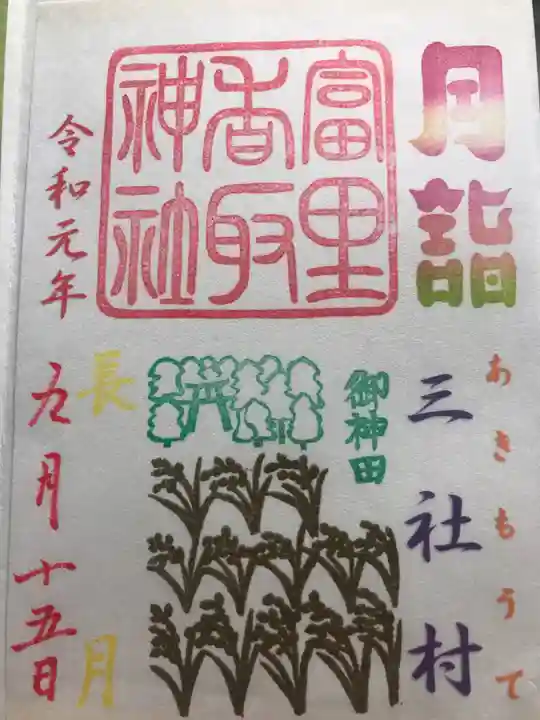 月詣
あきもうて
三社村
富里
香取
神社
御神田
長月
令和元年
九月十五日